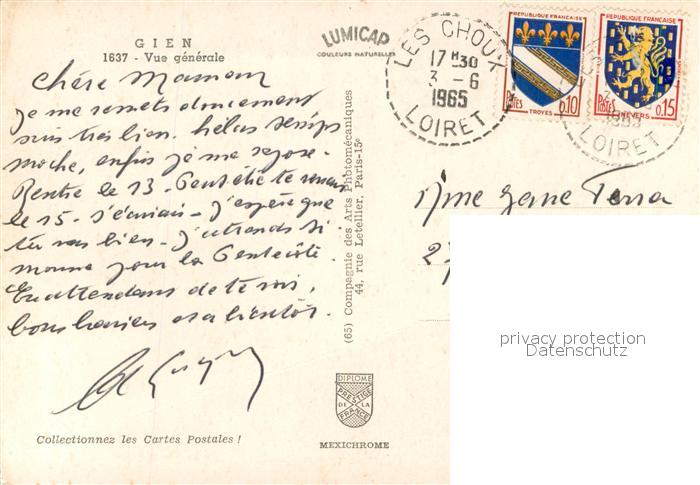 GIEN
1637 - Vue générale
LUMICAP
COULEURS NATURELLES
Chère Maman
je me remets doucement
suis très bien. hélas temps
moche, enfin je me repose.
Rentre le 13 - Peut-être te verrai
le 15 - j'espère que
tu vas bien - j'attends
pour la Pentecôte.
En attendant de te voir,
bons baisers et a bientôt.
Collectionnez les Cartes Postales !
(65) Compagnie des Arts Photomécaniques
44, rue Letellier, Paris-15e
DIPLOME
PRESTIGE
DE LA
FRANCE
MEXICHROME
LES CHOUX
17H30
3 - 6
1965
LOIRET
REPUBLIQUE FRANÇAISE
POSTES
0,10
TROYES
REPUBLIQUE FRANÇAISE
POSTES
0,15
NEVERS
1965
LOIRET
Mme
27
privacy protection
Datenschutz